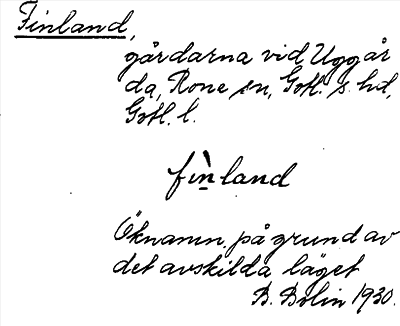 Finland,
gårdarna vid Uggår
da, Rone sn, Gotl. s. hd,
Gotl. l.
fìnland
Öknamn på grund av
det avskilda läget
B. Bolin 1930.